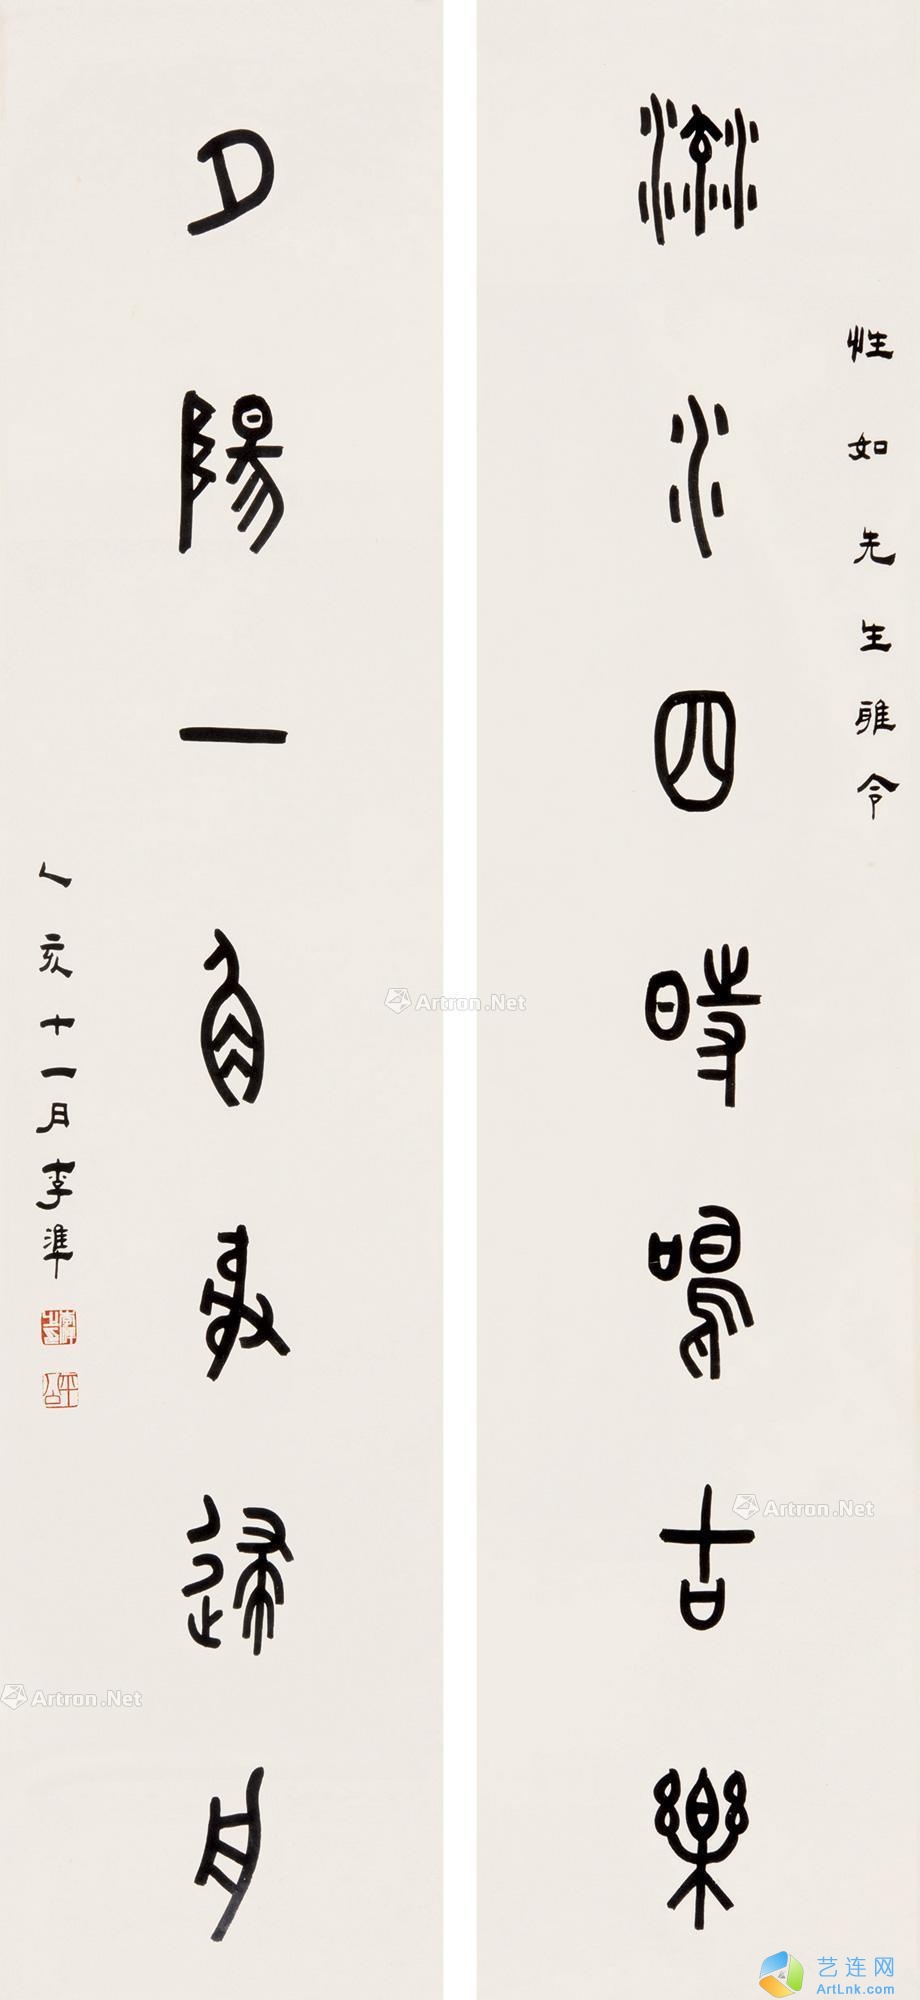 性如先生雅令
流水四時鳴古樂
夕陽一角射歸舟
乙亥十一月李準
Artron.Net
Artron.Net
Artron.Net
艺连网
ArtLnk.com